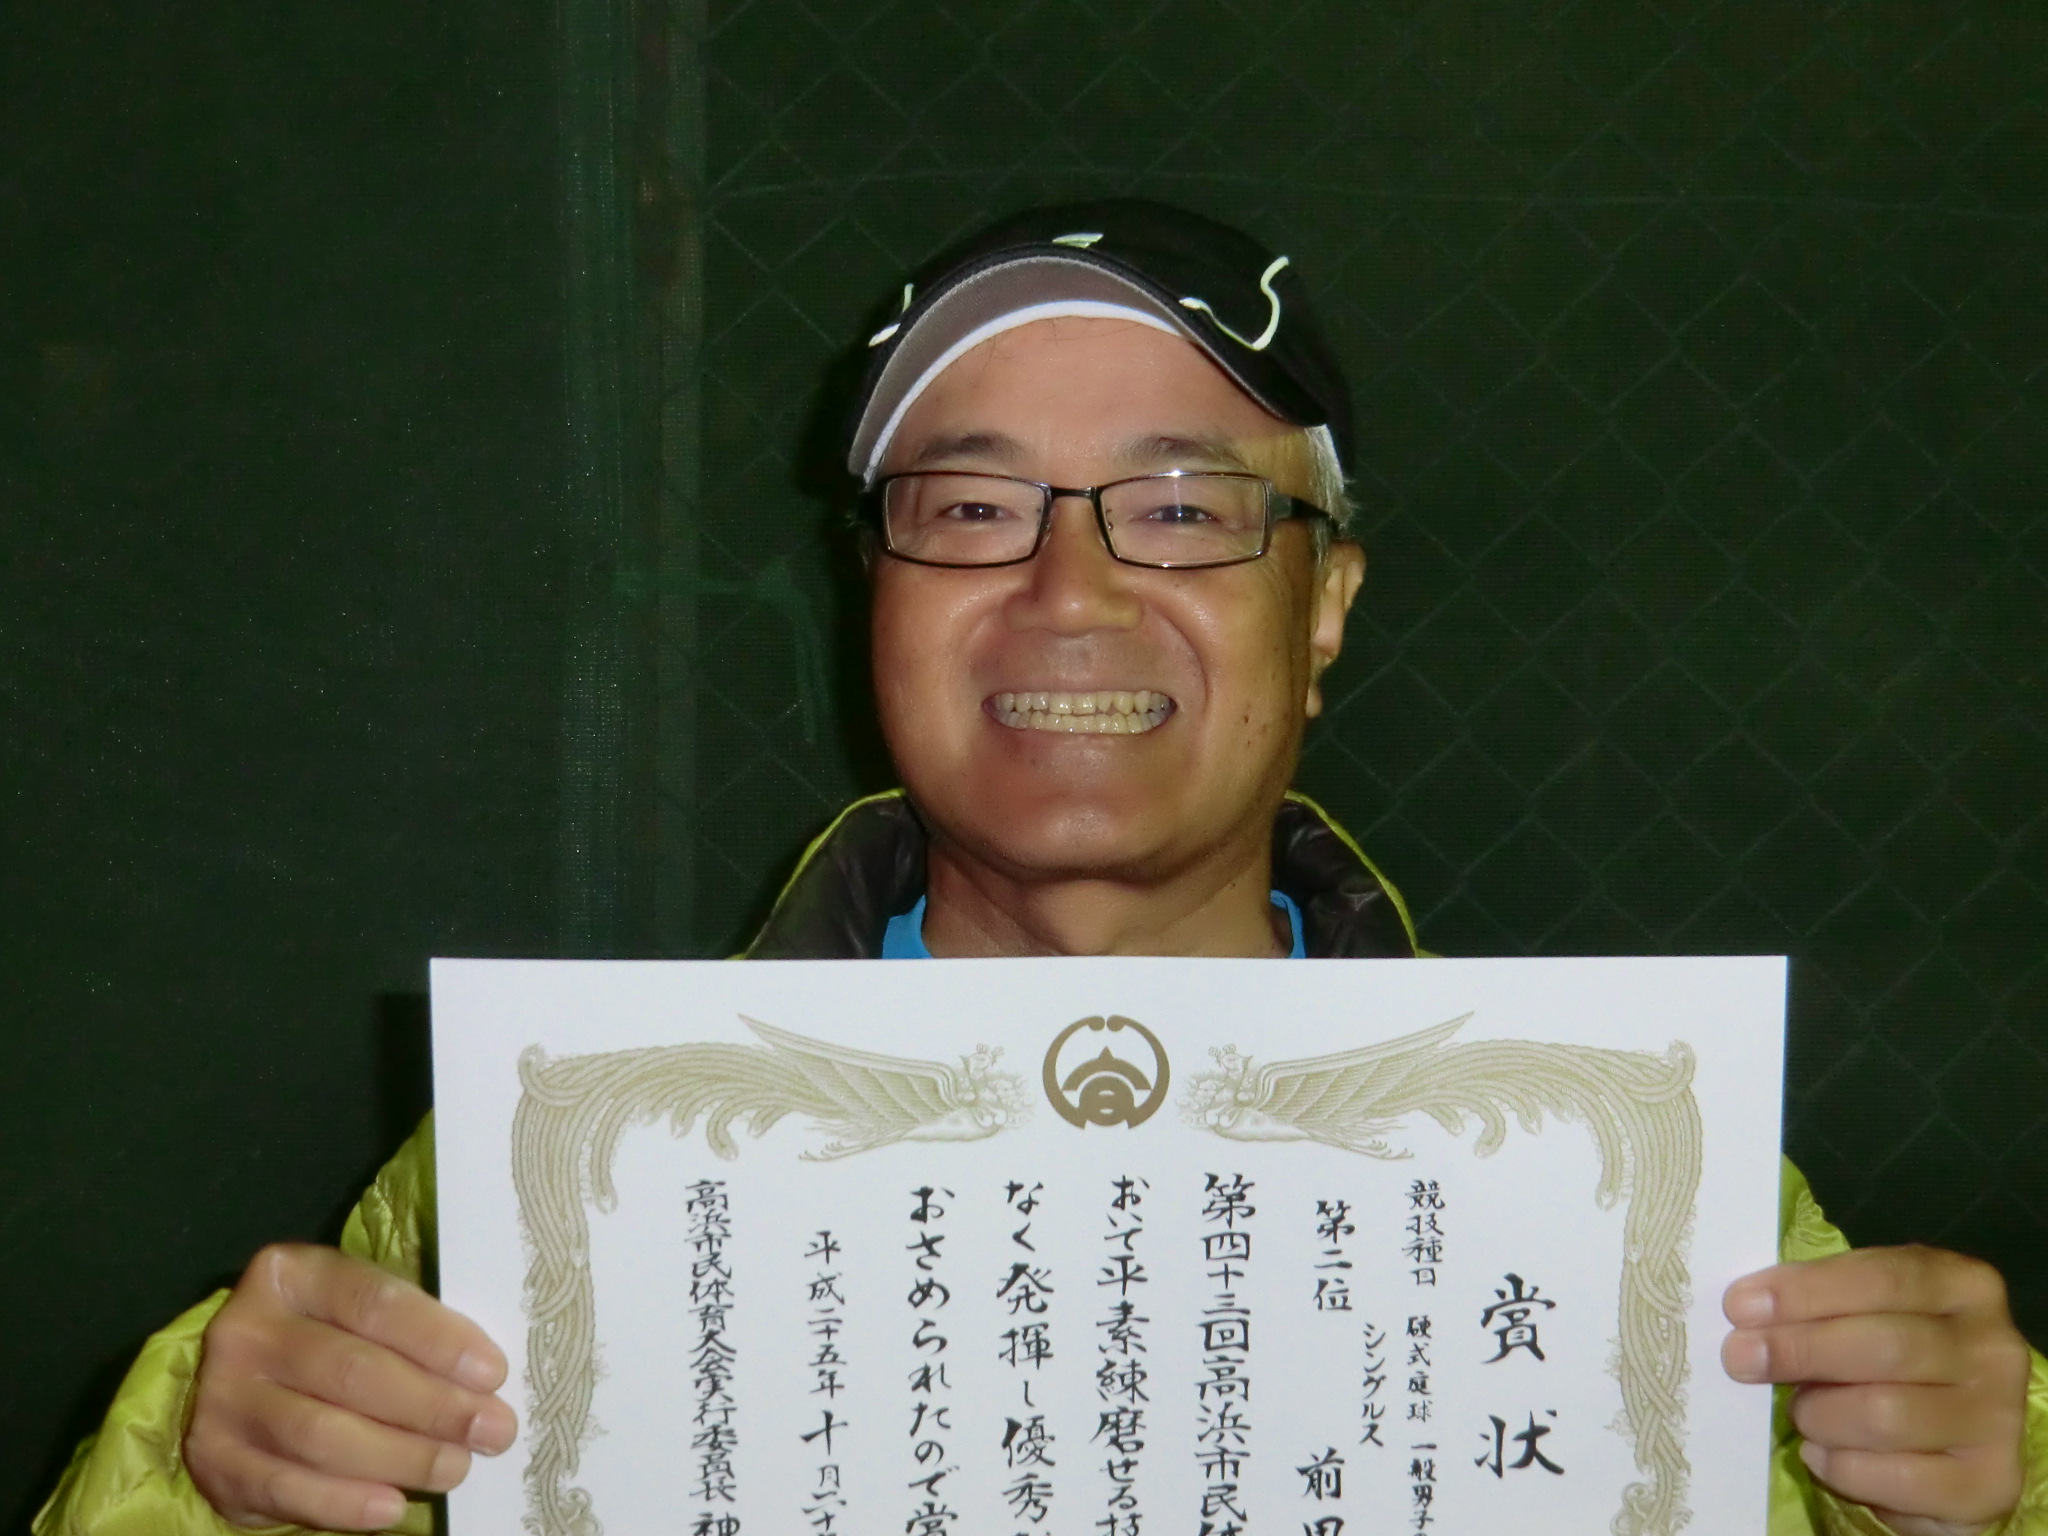 賞状
競技種目 硬式庭球 一般男子
シングルス
第二位 前田
第四十三回高浜市民体
おいて平素練磨せる技
なく発揮し優秀
おさめられたので賞
平成二十五年十月二十
高浜市民体育大会実行委員長 神